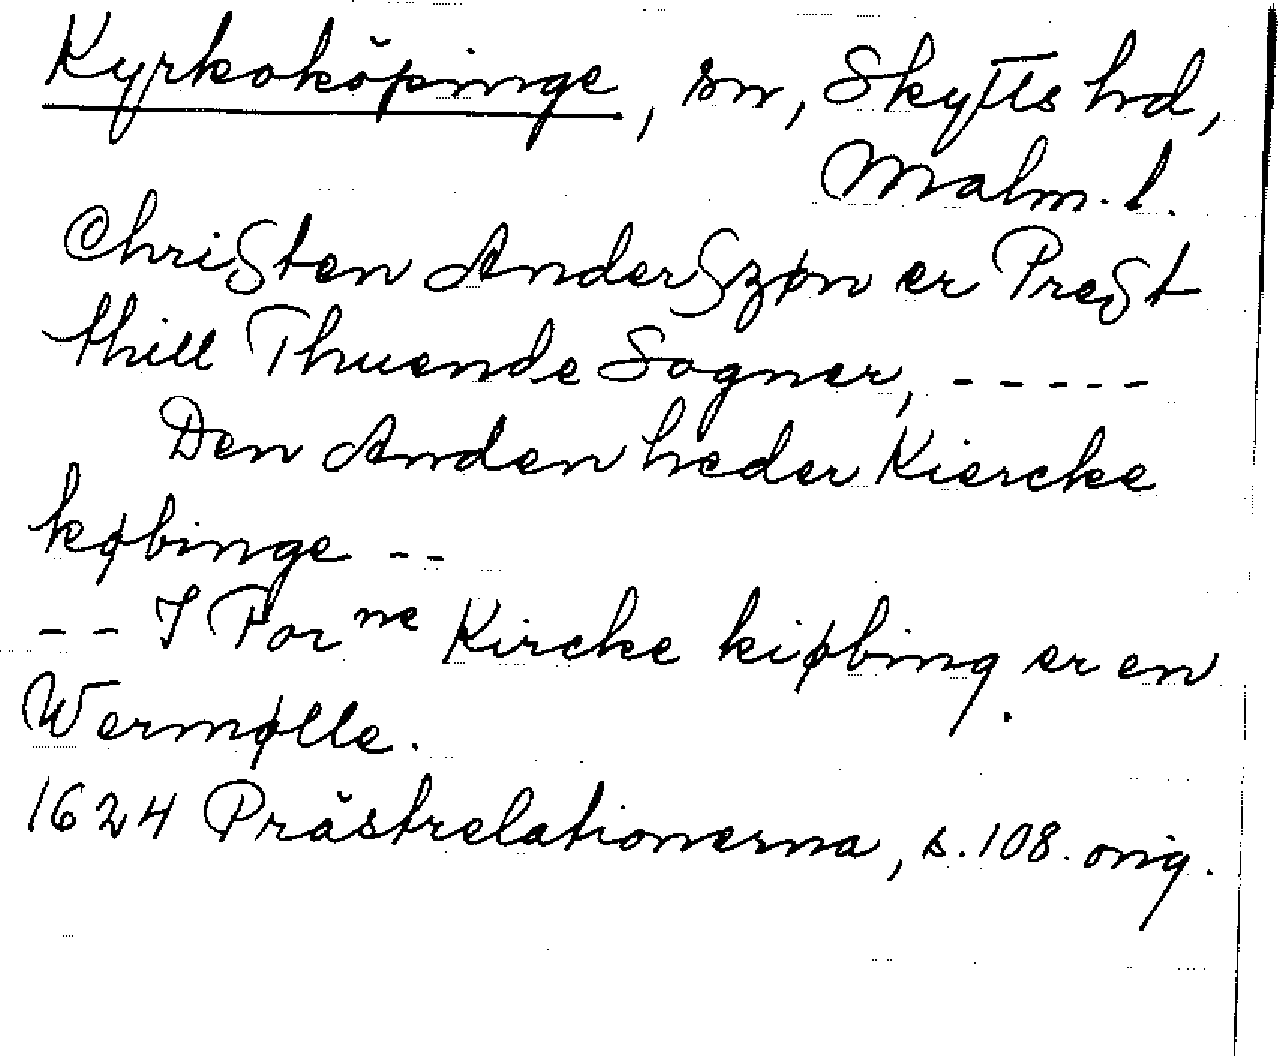 Kyrkoköpinge, sn, Skytts hd,
Malm. l.
Christen Anderszøn er Prest
thill Thuende Sogner, - - - - -
Den Anden heder Kiercke
købinge - -
- - I For ne Kircke kiøbing er en
Wermølle.
1624 Prästrelationerna, s. 108. orig.